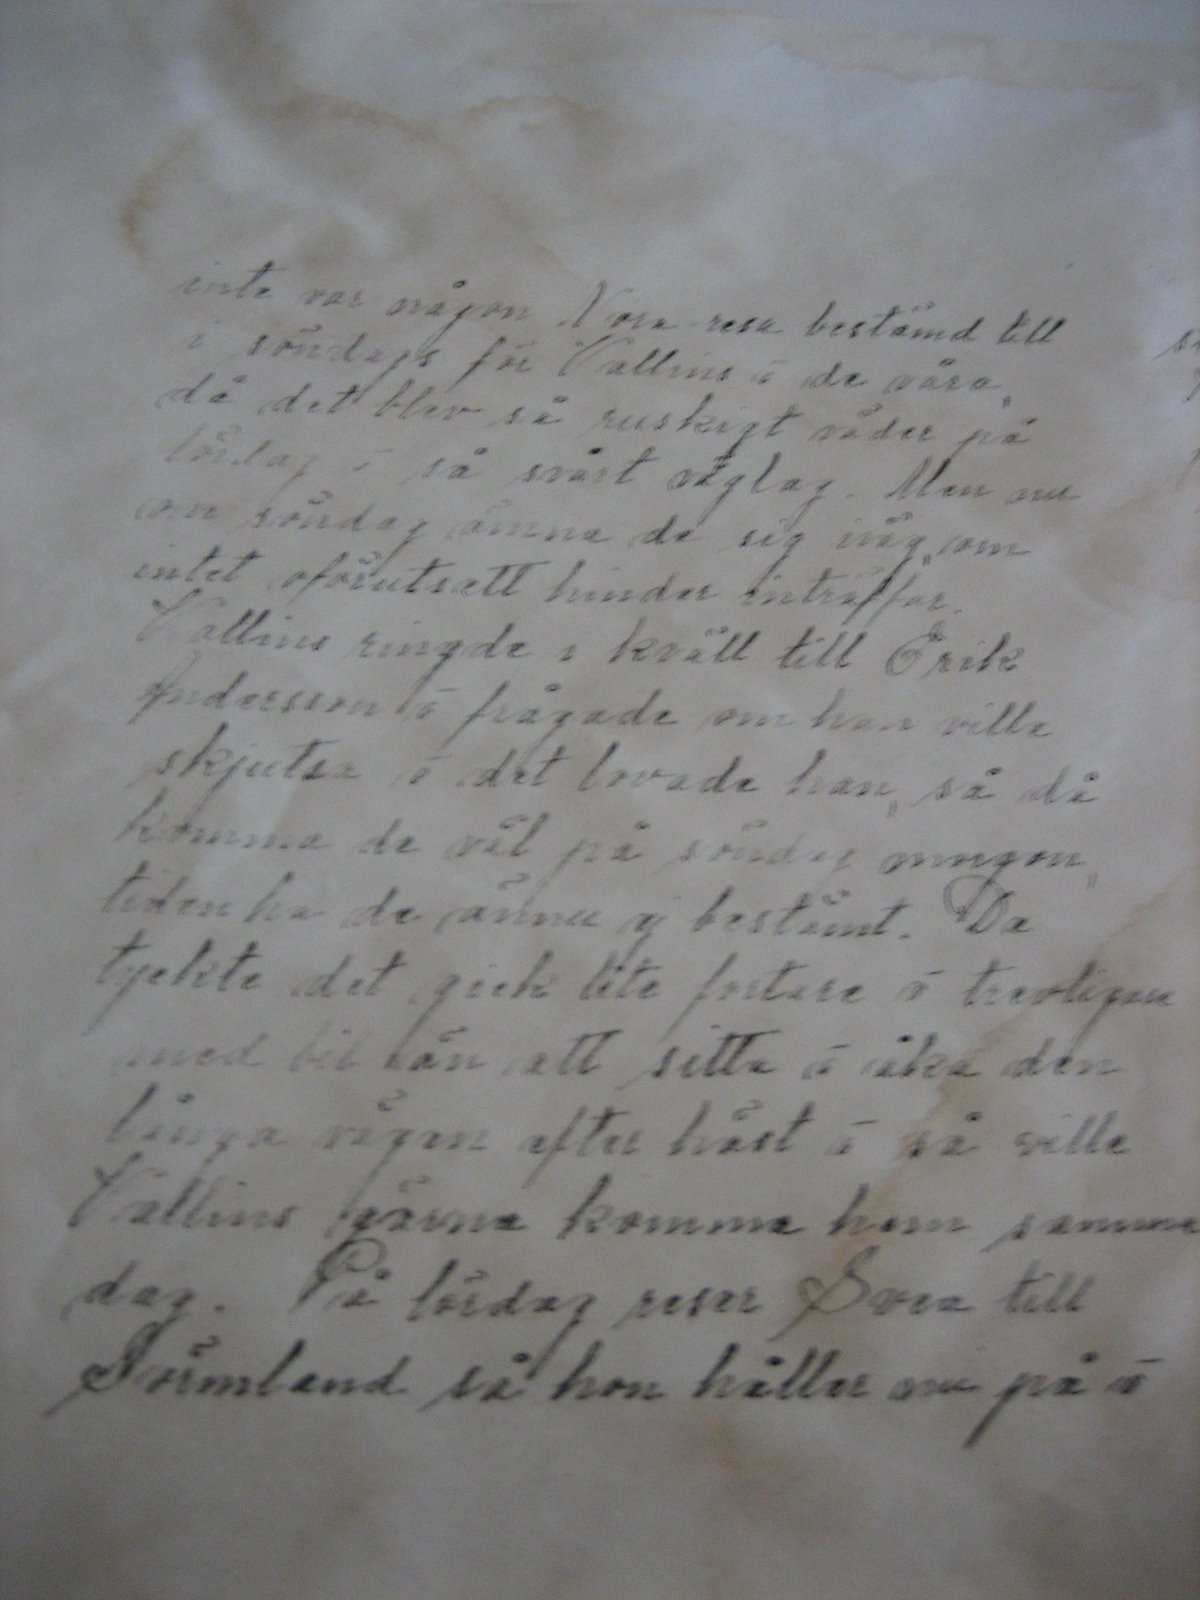 inte var någon Nora resa bestämd till
i söndags för Vallins o de våra,
då det blev så ruskigt väder på
lördag o så svårt väglag. Men nu
om söndag ämna de sig iväg, om
intet oförutsett hinder inträffar.
Vallins ringde i kväll till Erik
Andersson o frågade om han ville
skjutsa o det lovade han, så då
komma de väl på söndag morgon,
tiden ha de ännu ej bestämt. De
tyckte det gick lite fortare o trevligare
med bil än att sitta o åka den
långa vägen efter häst o så ville
Vallins gärna komma hem samma
dag. På lördag reser Svea till
Sörmland så hon håller nu på o